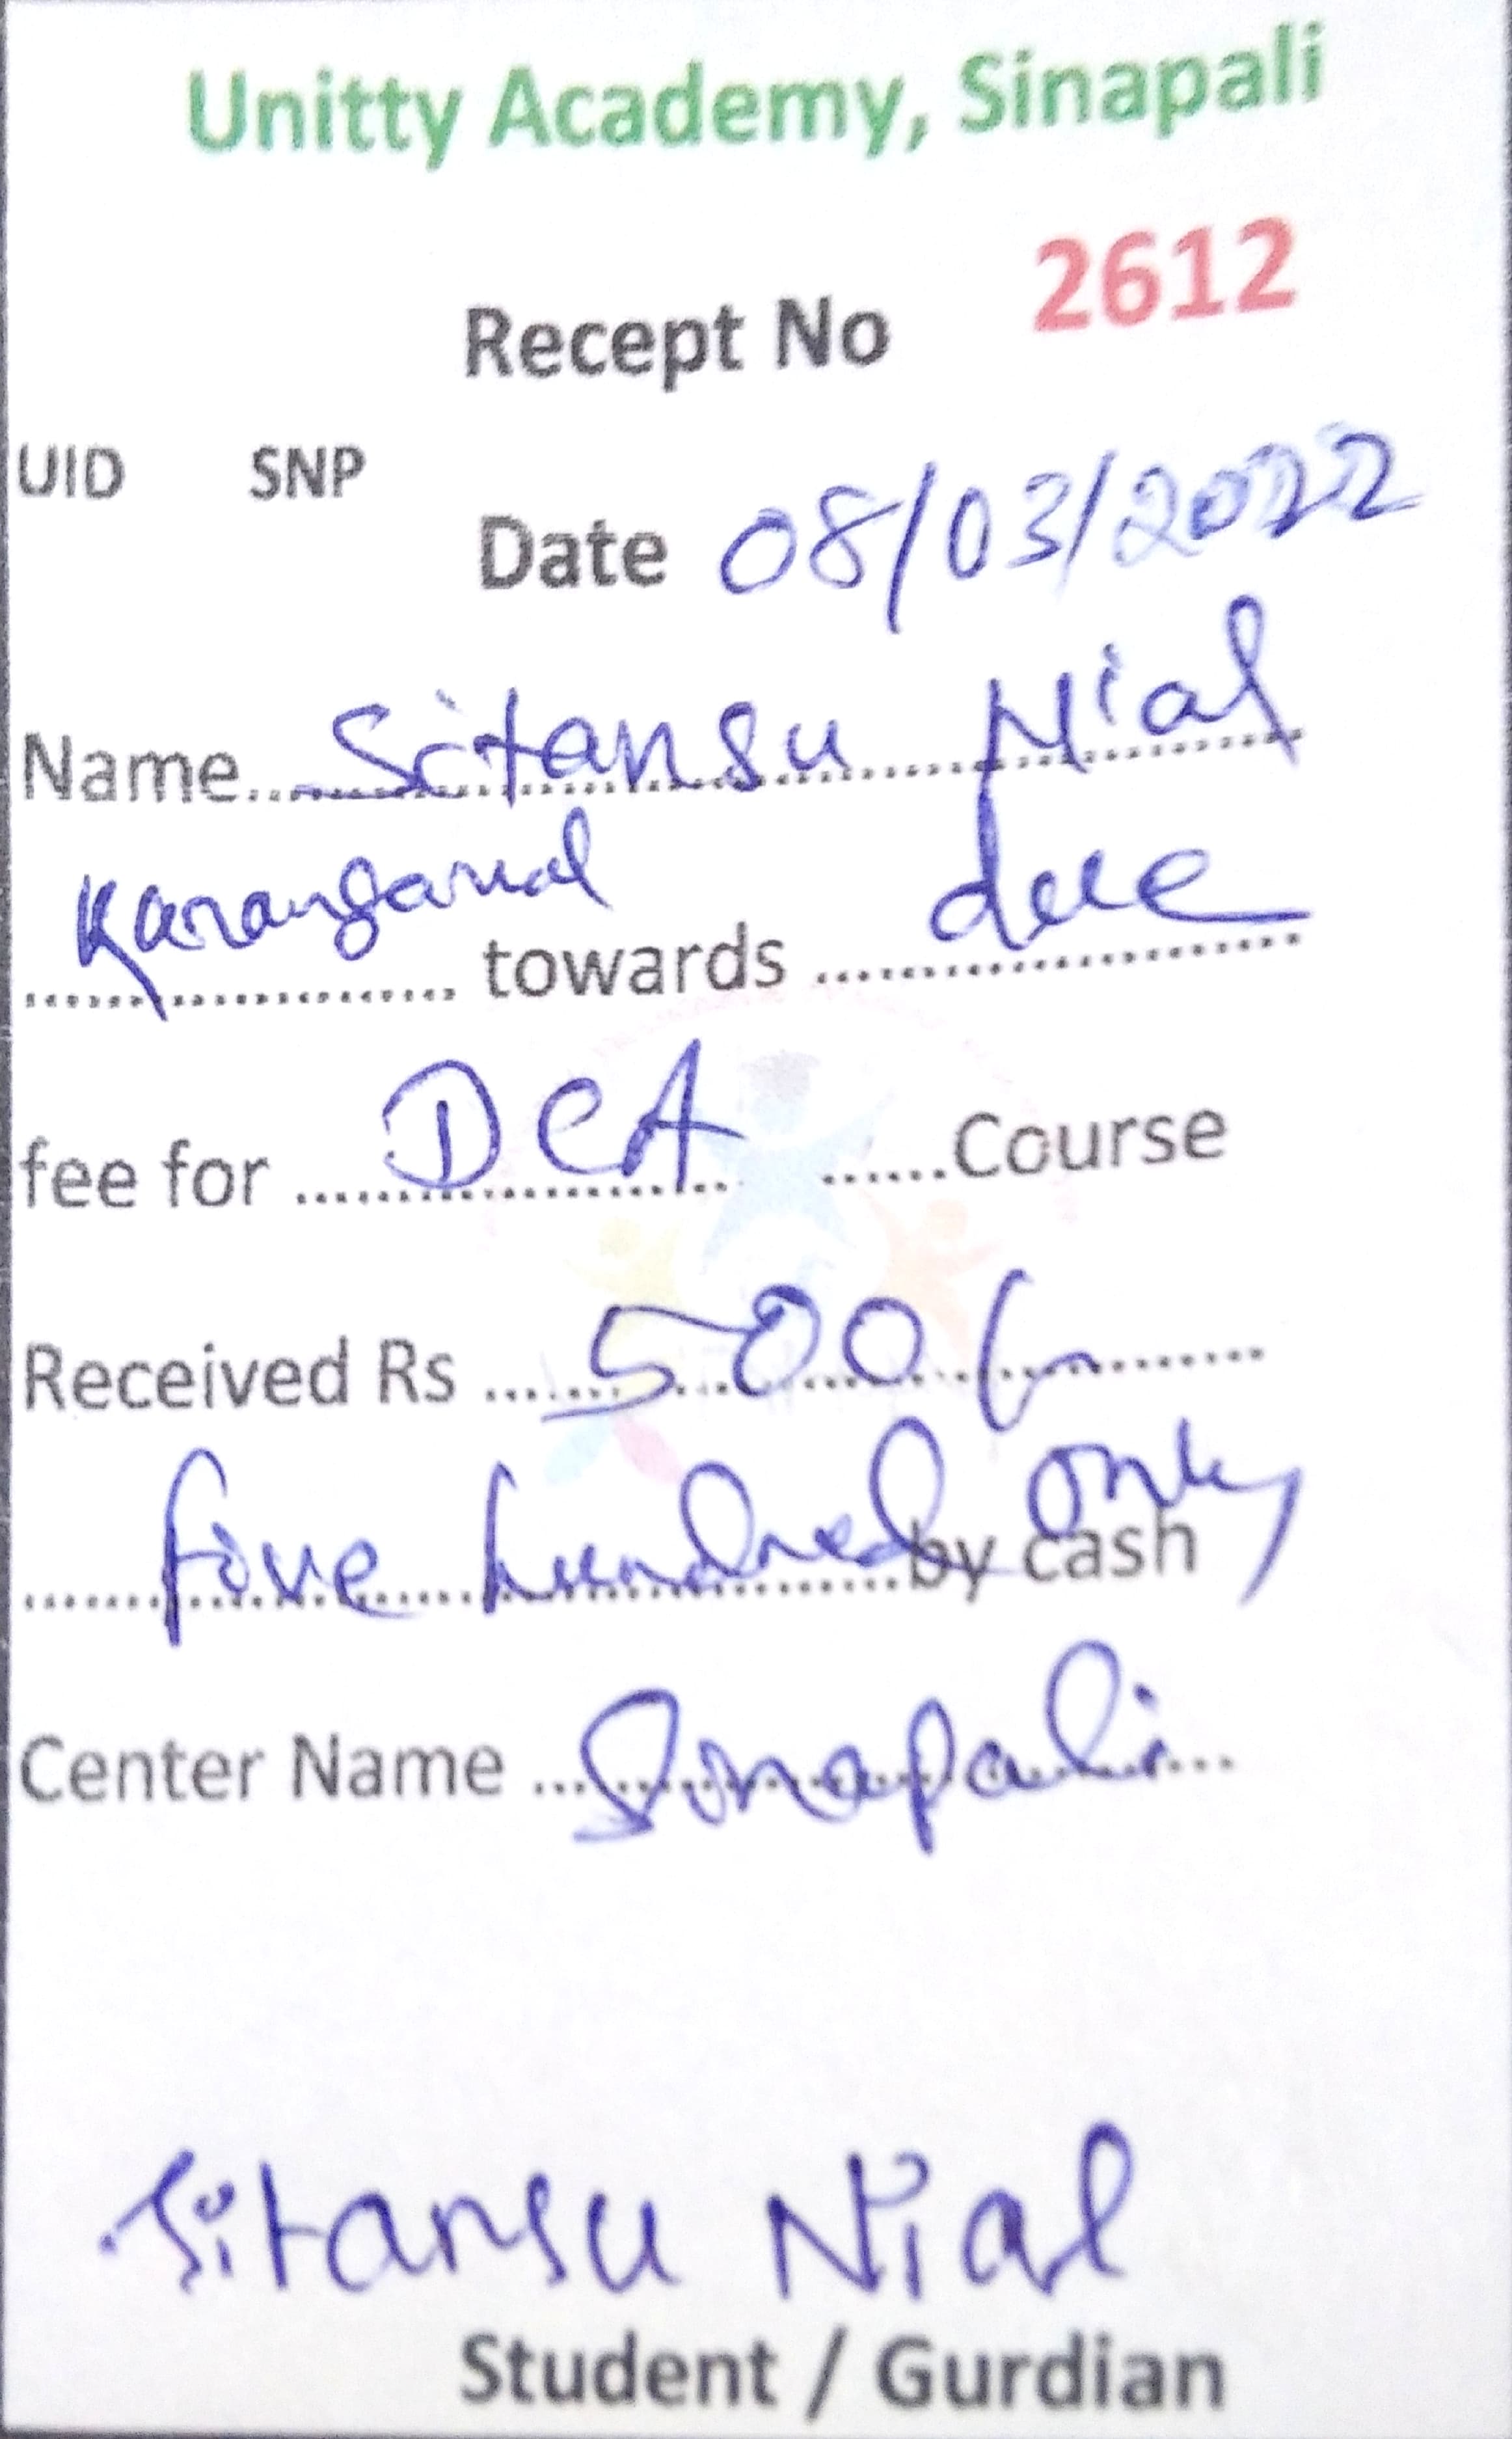 Unitty Academy, Sinapali
2612
Recept No
UID SNP
Date 08/03/2022
Name Sitansu Nial
Karangamal towards due
fee for DCA Course
Received Rs 500/-
five hundred only by cash
Center Name Sinapali
Sitansu Nial
Student / Gurdian